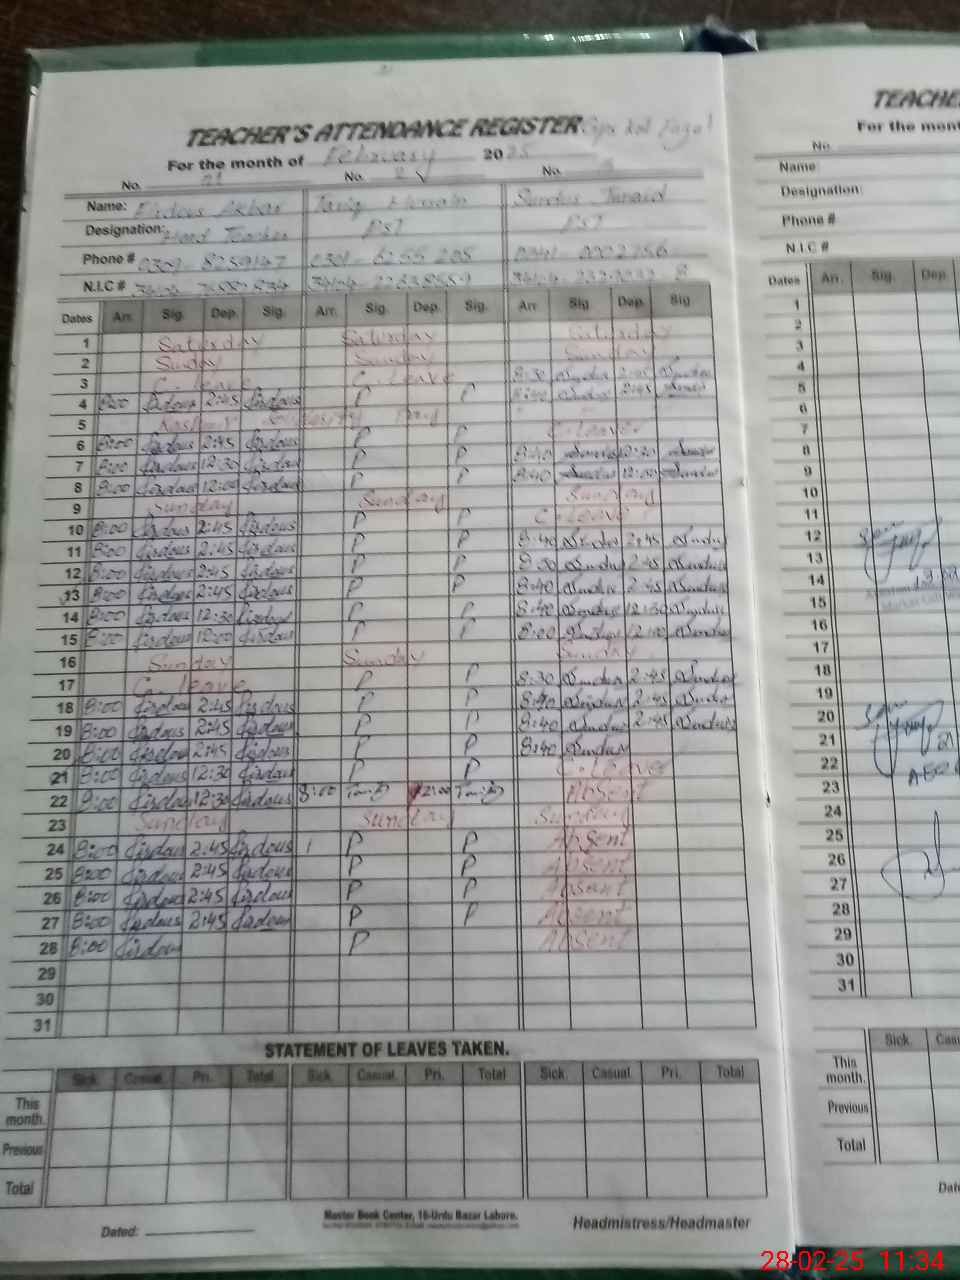 TEACHER'S ATTENDANCE REGISTER
For the month of February 2025
No. No. No.
Name: Firdous Akbar Tariq Hussain Sundus Junaid
Designation: Head Teacher PST PST
Phone #
N.I.C #
Dates Arr. Sig. Dep. Sig. Arr. Sig. Dep. Sig. Arr. Sig. Dep. Sig
1 Saturday Saturday Saturday
2 Sunday Sunday Sunday
3 C. leave C. Leave 8:30 Sundus 2:45 Sundus
4 8:00 firdous 2:45 firdous P P 8:40 Sundus 2:45 Sundus
5 Kashmir Day
6 8:00 firdous 2:45 firdous P P C. Leave
7 8:00 firdous 12:30 firdous P P 8:40 Sundus 12:30 Sundus
8 8:00 firdous 12:00 firdous P P 8:40 Sundus 12:00 Sundus
9 Sunday Sunday Sunday
10 8:00 firdous 2:45 firdous P P C. Leave
11 8:00 firdous 2:45 firdous P P 8:40 Sundus 2:45 Sundus
12 8:00 firdous 2:45 firdous P P 8:30 Sundus 2:45 Sundus
13 8:00 firdous 2:45 firdous P P 8:40 Sundus 2:45 Sundus
14 8:00 firdous 12:30 firdous P P 8:40 Sundus 12:30 Sundus
15 8:00 firdous 12:00 firdous P P 8:00 Sundus 12:00 Sundus
16 Sunday Sunday Sunday
17 C. leave P P 8:30 Sundus 2:45 Sundus
18 8:00 firdous 2:45 firdous P P 8:40 Sundus 2:45 Sundus
19 8:00 firdous 2:45 firdous P P 8:40 Sundus 2:45 Sundus
20 8:00 firdous 2:45 firdous P P 8:40 Sundus
21 8:00 firdous 12:30 firdous P P C. Leave
22 8:00 firdous 12:30 firdous 8:00 Tariq 12:00 Tariq Absent
23 Sunday Sunday Sunday
24 8:00 firdous 2:45 firdous P P Absent
25 8:00 firdous 2:45 firdous P P Absent
26 8:00 firdous 2:45 firdous P P Absent
27 8:00 firdous 2:45 firdous P P Absent
28 8:00 firdous P Absent
29
30
31
STATEMENT OF LEAVES TAKEN.
Sick. Casual. Pri. Total Sick. Casual. Pri. Total Sick. Casual. Pri. Total
This month.
Previous
Total
Dated:
Master Book Center, 16-Urdu Bazar Lahore.
Headmistress/Headmaster
TEACHE
For the mont
No.
Name:
Designation:
Phone #
N.I.C #
Dates Arr. Sig. Dep.
1
2
3
4
5
6
7
8
9
10
11
12
13
14
15
16
17
18
19
20
21
22
23
24
25
26
27
28
29
30
31
Sick. Casu
This month.
Previous
Total
Date
28-02-25 11:34